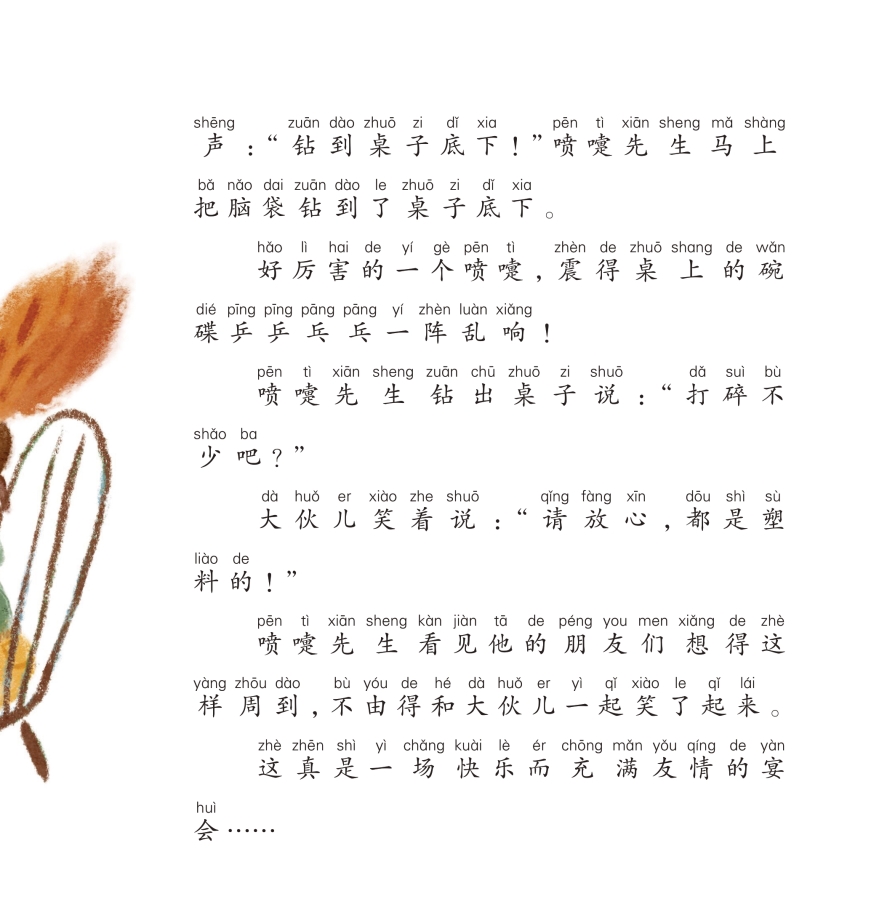 shēng zuān dào zhuō zi dǐ xia pēn tì xiān sheng mǎ shàng
声：“钻到桌子底下！”喷嚏先生马上
bǎ nǎo dai zuān dào le zhuō zi dǐ xia
把脑袋钻到了桌子底下。
hǎo lì hai de yí gè pēn tì zhèn de zhuō shang de wǎn
好厉害的一个喷嚏，震得桌上的碗
dié pīng pīng pāng pāng yí zhèn luàn xiǎng
碟乒乒乓乓一阵乱响！
pēn tì xiān sheng zuān chū zhuō zi shuō dǎ suì bù
喷嚏先生钻出桌子说：“打碎不
shǎo ba
少吧？”
dà huǒ er xiào zhe shuō qǐng fàng xīn dōu shì sù
大伙儿笑着说：“请放心，都是塑
liào de
料的！”
pēn tì xiān sheng kàn jiàn tā de péng you men xiǎng de zhè
喷嚏先生看见他的朋友们想得这
yàng zhōu dào bù yóu de hé dà huǒ er yì qǐ xiào le qǐ lái
样周到，不由得和大伙儿一起笑了起来。
zhè zhēn shì yì chǎng kuài lè ér chōng mǎn yǒu qíng de yàn
这真是一场快乐而充满友情的宴
huì
会……